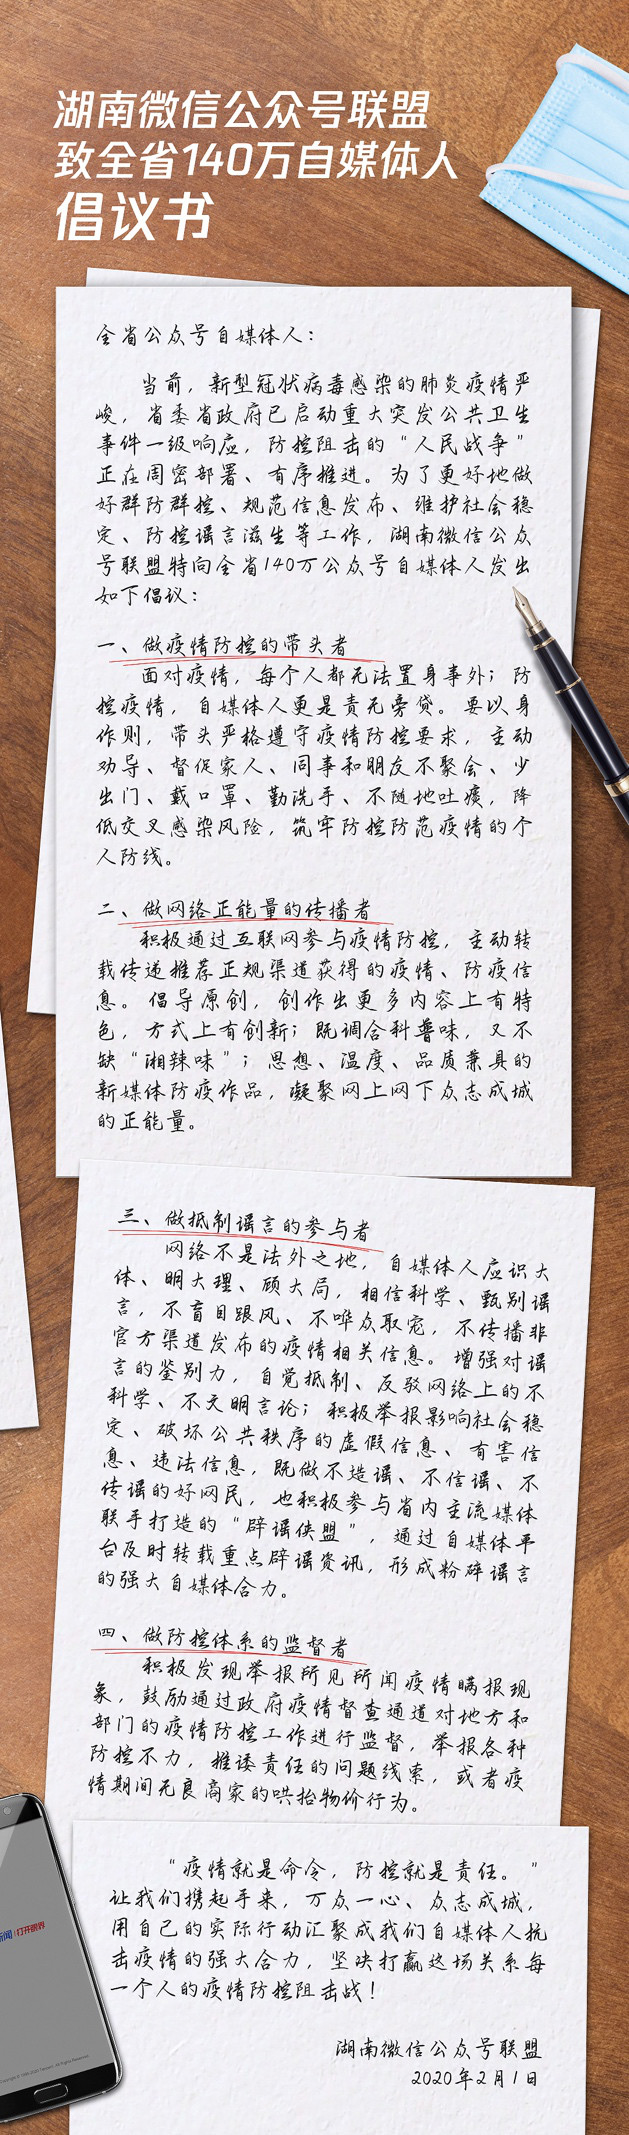 湖南微信公众号联盟
致全省140万自媒体人
倡议书
全省公众号自媒体人：
当前，新型冠状病毒感染的肺炎疫情严
峻，省委省政府已启动重大突发公共卫生
事件一级响应，防控阻击的“人民战争”
正在周密部署、有序推进。为了更好地做
好群防群控、规范信息发布、维护社会稳
定、防控谣言滋生等工作，湖南微信公众
号联盟特向全省140万公众号自媒体人发出
如下倡议：
一、做疫情防控的带头者
面对疫情，每个人都无法置身事外；防
控疫情，自媒体人更是责无旁贷。要以身
作则，带头严格遵守疫情防控要求，主动
劝导、督促家人、同事和朋友不聚会、少
出门、戴口罩、勤洗手、不随地吐痰，降
低交叉感染风险，筑牢防控防范疫情的个
人防线。
二、做网络正能量的传播者
积极通过互联网参与疫情防控，主动转
载传递推荐正规渠道获得的疫情、防疫信
息。倡导原创，创作出更多内容上有特
色，方式上有创新；既调合科普味，又不
缺“湘辣味”；思想、温度、品质兼具的
新媒体防疫作品，凝聚网上网下众志成城
的正能量。
三、做抵制谣言的参与者
网络不是法外之地，自媒体人应识大
体、明大理、顾大局，相信科学、甄别谣
言，不盲目跟风、不哗众取宠，不传播非
官方渠道发布的疫情相关信息。增强对谣
言的鉴别力，自觉抵制、反驳网络上的不
科学、不文明言论；积极举报影响社会稳
定、破坏公共秩序的虚假信息、有害信
息、违法信息，既做不造谣、不信谣、不
传谣的好网民，也积极参与省内主流媒体
联手打造的“辟谣侠盟”，通过自媒体平
台及时转载重点辟谣资讯，形成粉碎谣言
的强大自媒体合力。
四、做防控体系的监督者
积极发现举报所见所闻疫情瞒报现
象，鼓励通过政府疫情督查通道对地方和
部门的疫情防控工作进行监督，举报各种
防控不力，推诿责任的问题线索，或者疫
情期间无良商家的哄抬物价行为。
“疫情就是命令，防控就是责任。”
让我们携起手来，万众一心、众志成城，
用自己的实际行动汇聚成我们自媒体人抗
击疫情的强大合力，坚决打赢这场关系每
一个人的疫情防控阻击战！
湖南微信公众号联盟
2020年2月1日
新闻|打开眼界